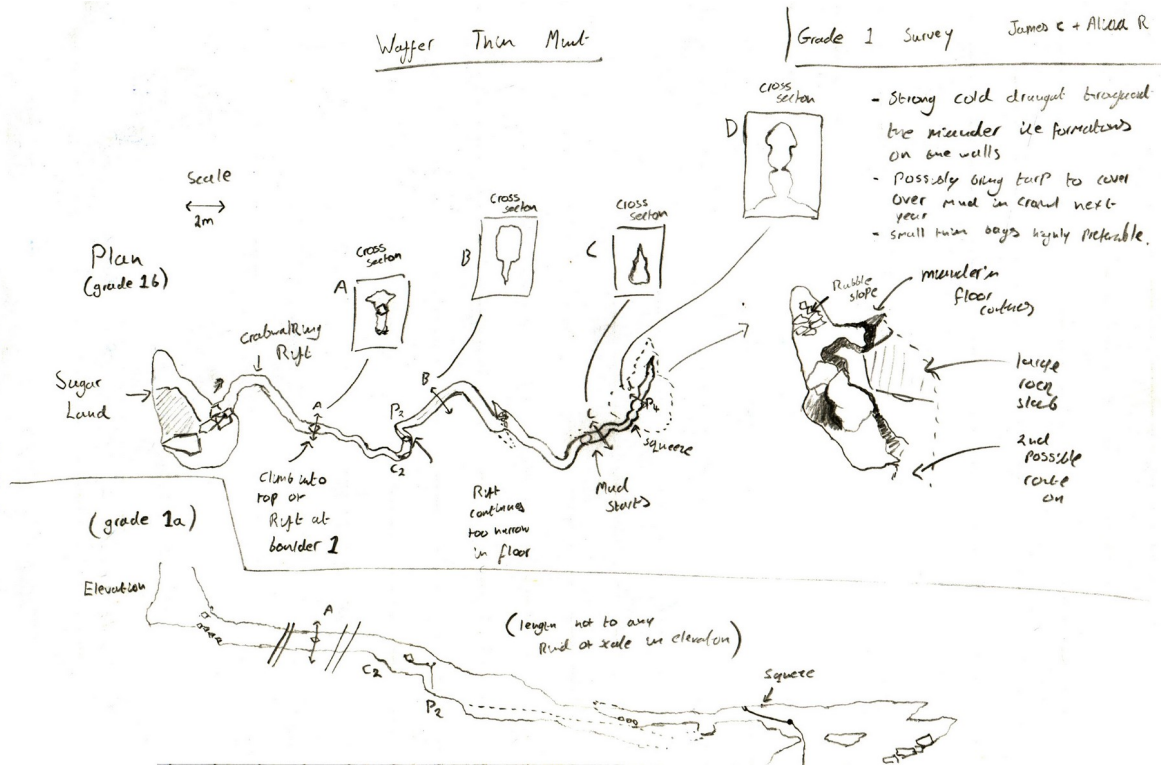 Waffer Thin Mint
Grade 1 Survey James C + Alicia R
- Strong cold draught throughout
the miander like formations
on the walls
- Possibly bring tarp to cover
over Mud in crawl next
year
- small thin bags highly preferable.
Scale
2m
Plan
(grade 1b)
Cross
section
A
Cross
section
B
Cross
section
C
Cross
section
D
Crabwalking
Rift
Sugar
Land
A
B
P2
C2
C
P4
squeeze
Mud
Starts
Climb into
top of
Rift at
boulder 1
Rift
continues
too narrow
in floor
Rubble
slope
miander in
floor
continues
large
rock
slab
2nd
possible
route
on
(grade 1a)
Elevation
A
(length not to any
kind of scale in elevation)
C2
P2
squeeze